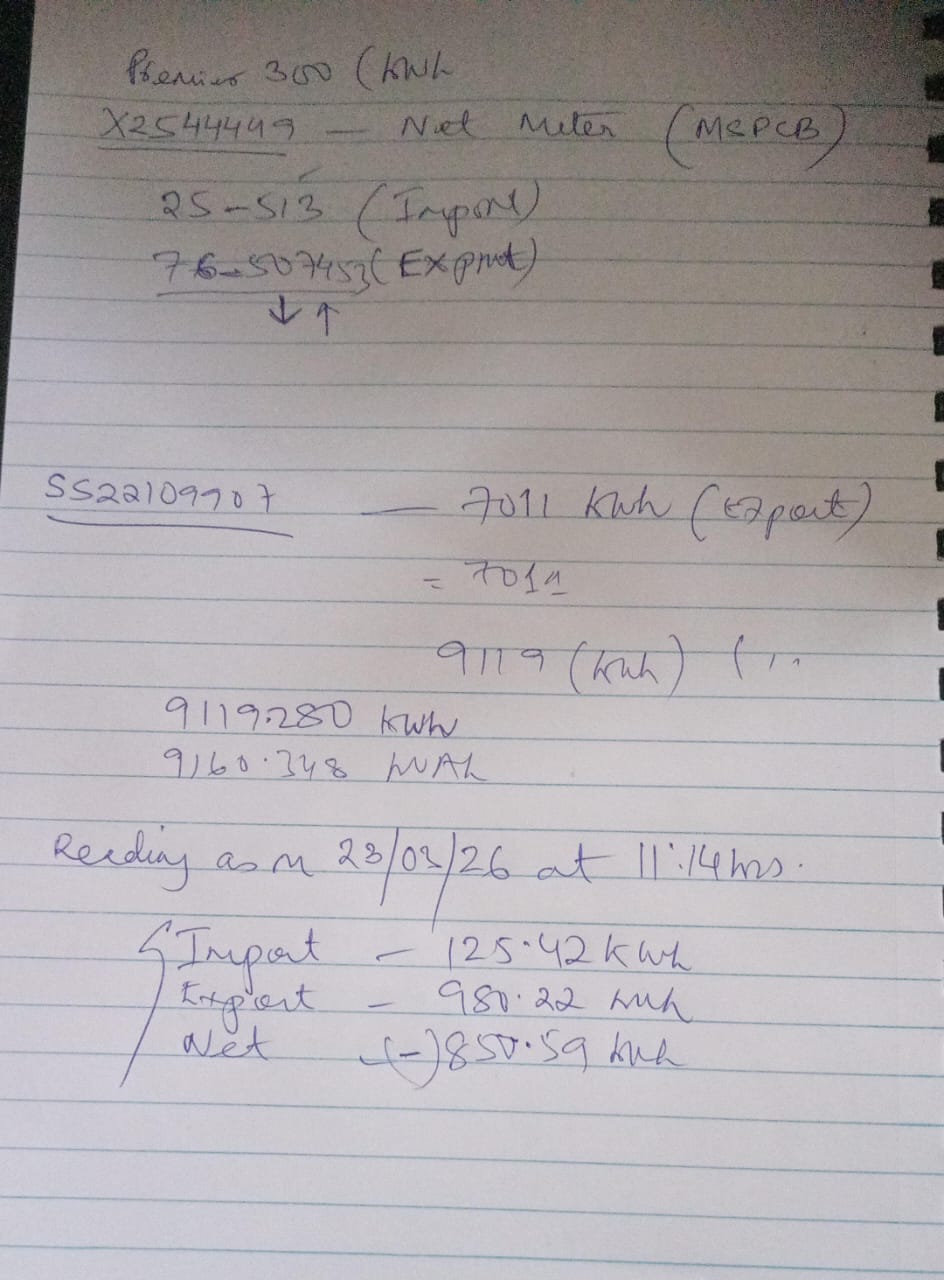 Premier 300 (kwh
X2544449 — Net Meter (MSPCB)
25-513 (Import)
76-507453 (Export)
↓ ↑
SS22109907 — 7011 kwh (Export)
= 7011
9119 (kwh) (
9119.280 kwh
9160.348 kVAh
Reading as on 23/03/26 at 11:14 hrs.
Import - 125.42 kwh
Export - 980.22 kwh
Net (-) 850.59 kwh